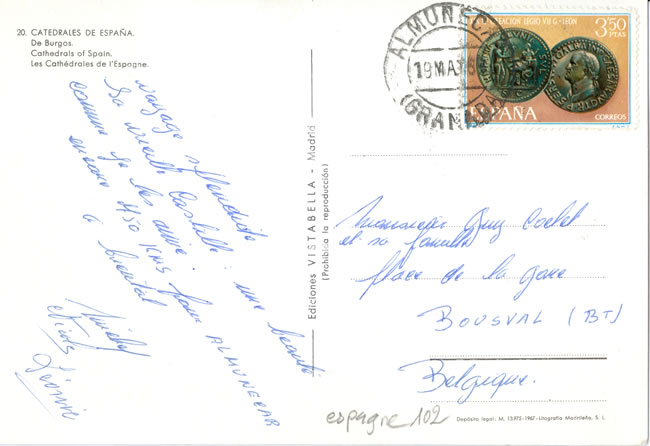 20. CATEDRALES DE ESPAÑA.
De Burgos.
Cathedrals of Spain.
Les Cathédrales de l'Espagne.
voyage splendide
la vieille Castille : une beauté
comme je les aime.
encore 450 kms pour ALMUNECAR
à bientôt
Ediciones VISTABELLA - Madrid
(Prohibida la reproducción)
ALMUÑECAR
19 MA
(GRANADA)
LEGIO VII G. LEON
3,50
PTAS
ESPAÑA
CORREOS
Monsieur Guy
et sa famille
place de la Gare
BOUSVAL (BT)
Belgique.
espagne 102
Depósito legal: M. 13.975-1967-Litografía Madrileña, S. L.